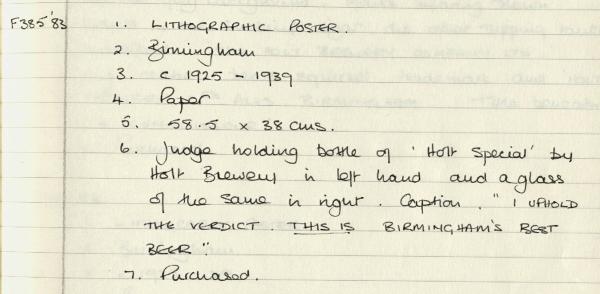 F385'83 1. LITHOGRAPHIC POSTER.
2. Birmingham
3. c 1925 - 1939
4. Paper
5. 58.5 x 38 cms.
6. Judge holding bottle of 'Holt Special' by
Holt Brewery in left hand and a glass
of the same in right. Caption. "I UPHOLD
THE VERDICT. THIS IS BIRMINGHAM'S BEST
BEER"
7. Purchased.